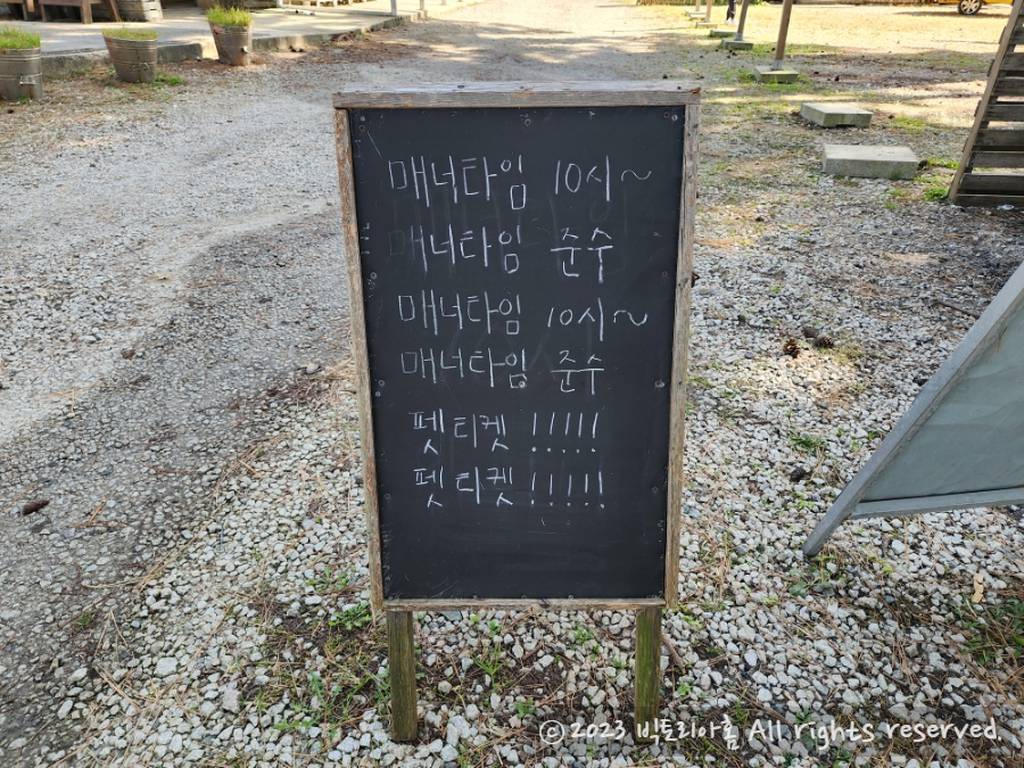 매너타임 10시~
매너타임 준수
매너타임 10시~
매너타임 준수
펫티켓 !!!!!
펫티켓 !!!!!
ⓒ2023 빅토리아홈 All rights reserved.